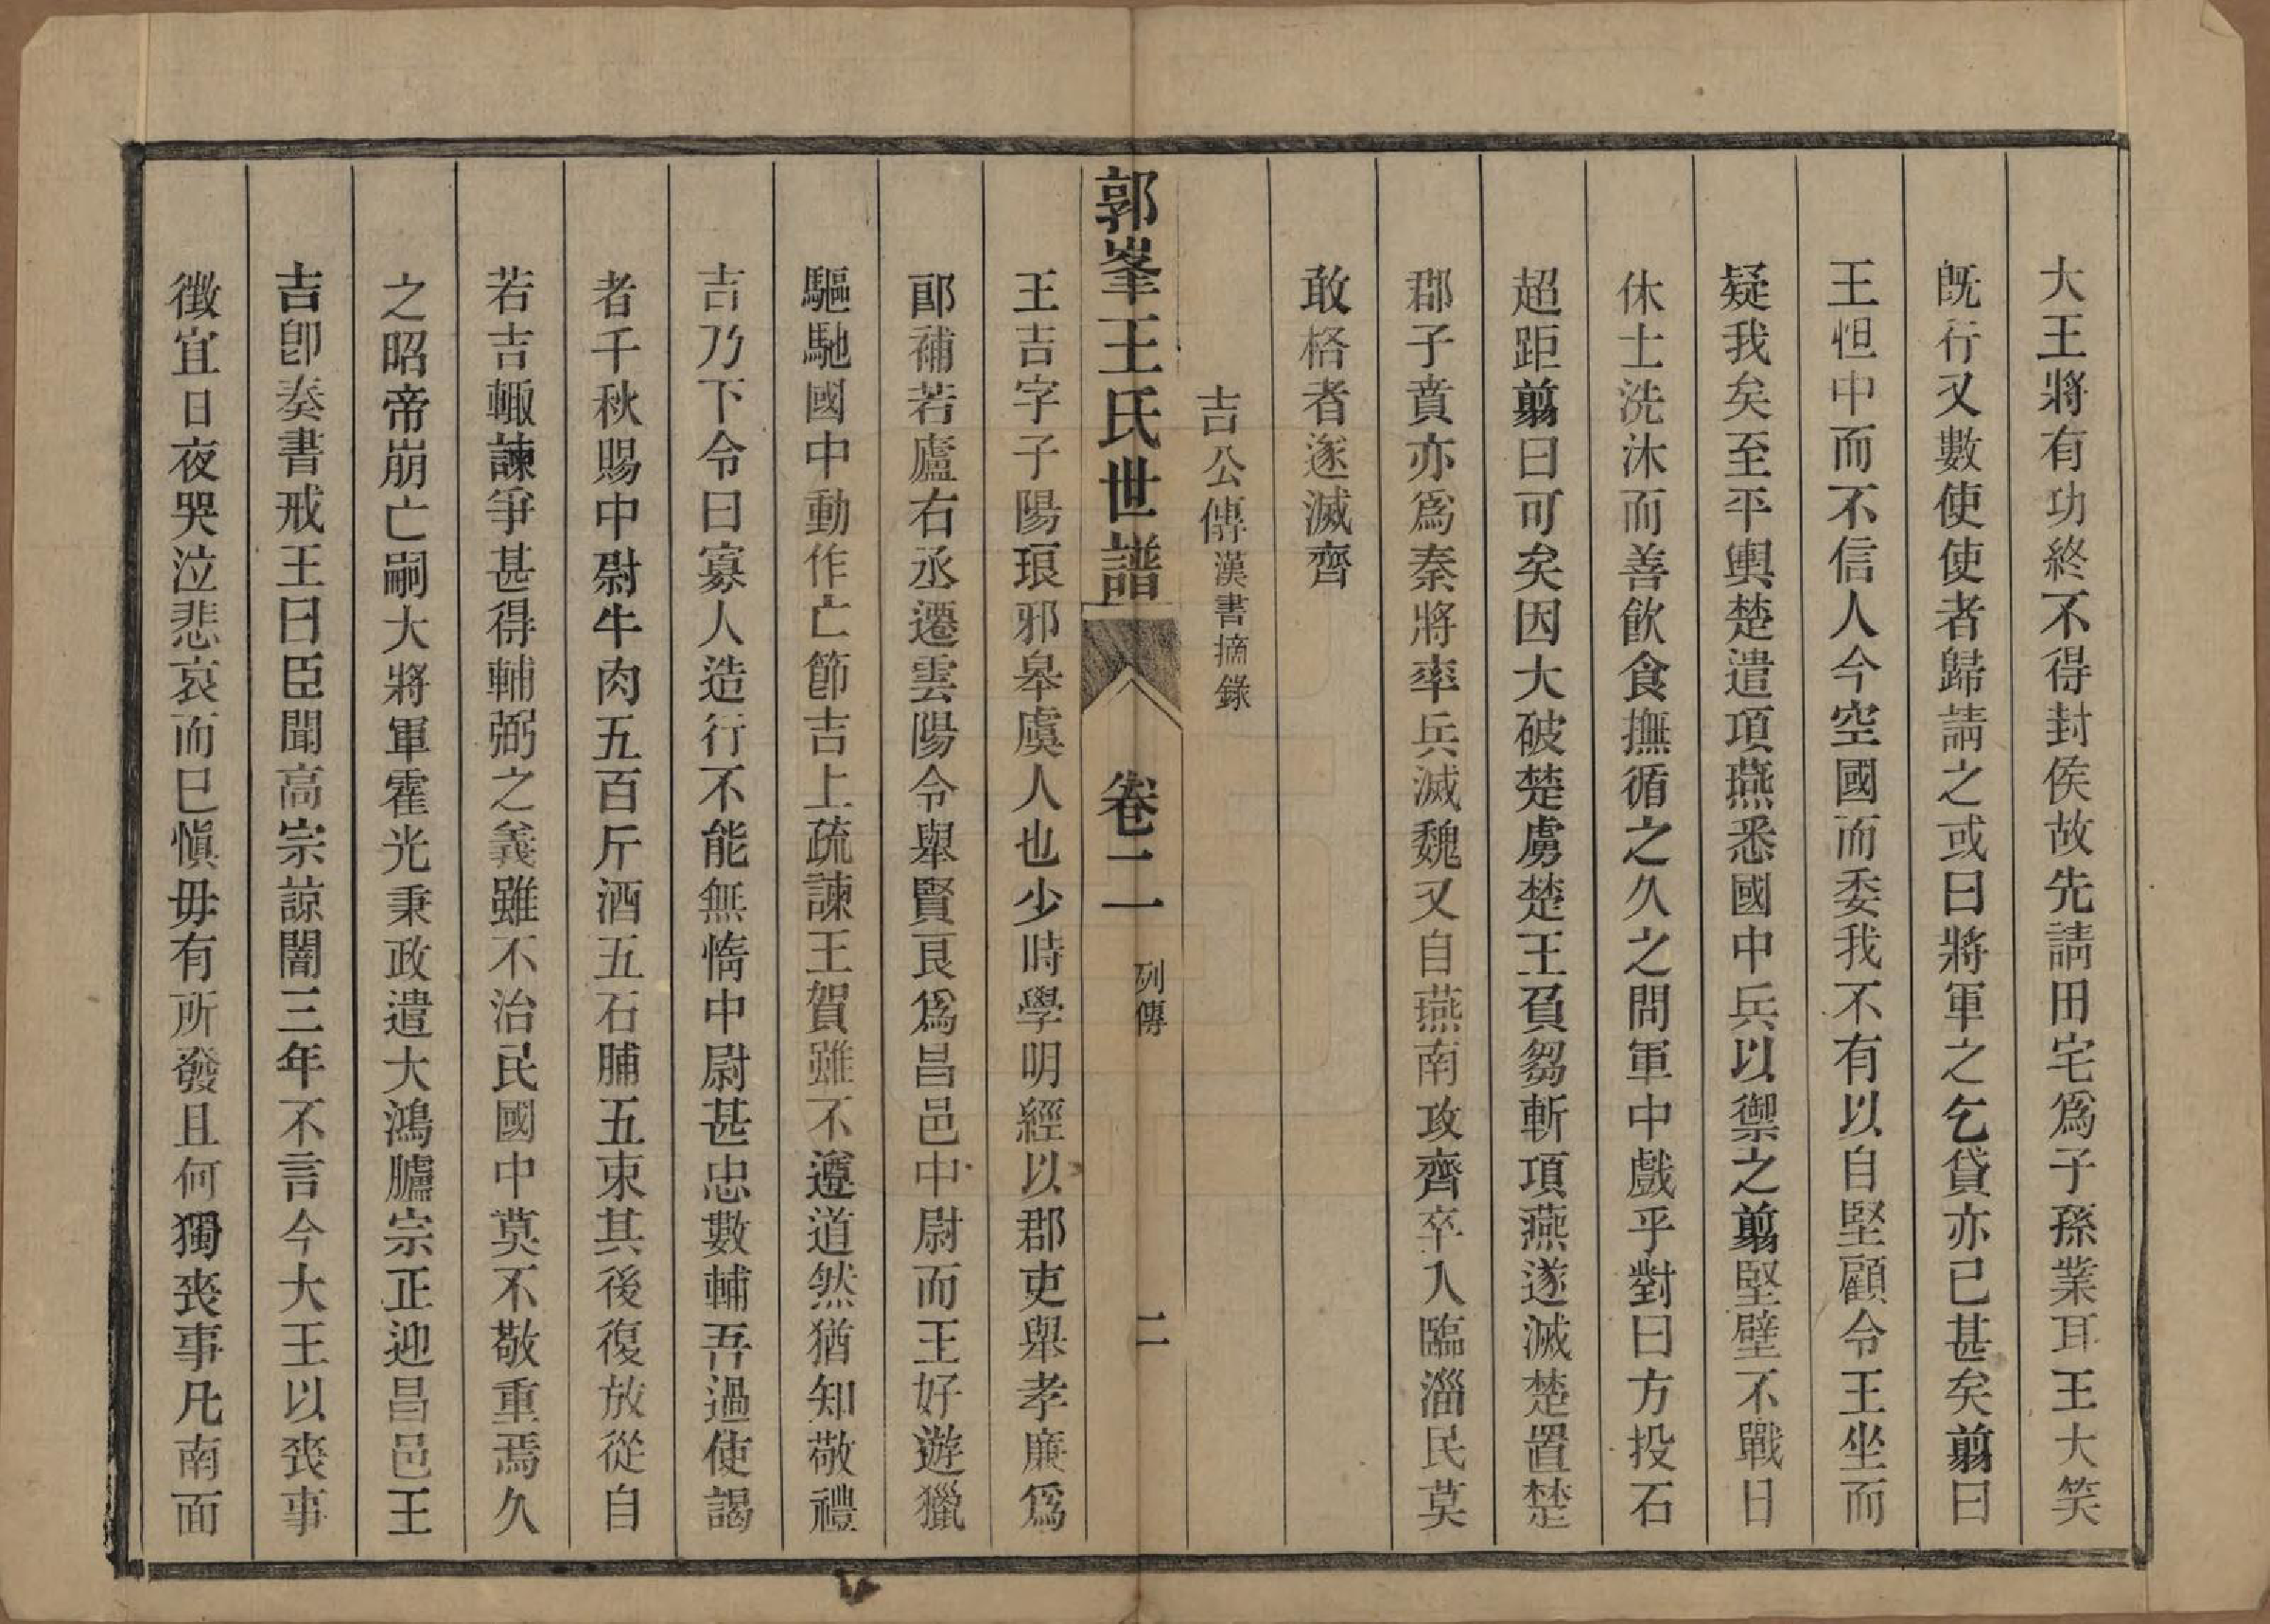 大王將有功終不得封侯故先請田宅爲子孫業耳王大笑
旣行又數使使者歸請之或曰將軍之乞貸亦已甚矣翦曰
王怚中而不信人今空國而委我不有以自堅顧令王坐而
疑我矣至平輿楚遣項燕悉國中兵以禦之翦堅壁不戰日
休士洗沐而善飮食撫循之久之問軍中戲乎對曰方投石
超距翦曰可矣因大破楚虜楚王負芻斬項燕遂滅楚置楚
郡子賁亦爲秦將率兵滅魏又自燕南攻齊卒入臨淄民莫
敢格者遂滅齊
吉公傳漢書摘錄
郭峯王氏世譜 卷二 列傳 二
王吉字子陽琅邪皋虞人也少時學明經以郡吏舉孝廉爲
郎補若廬右丞遷雲陽令舉賢良爲昌邑中尉而王好遊獵
驅馳國中動作亡節吉上疏諫王賀雖不遵道然猶知敬禮
吉乃下令曰寡人造行不能無惰中尉甚忠數輔吾過使謁
者千秋賜中尉牛肉五百斤酒五石脯五束其後復放從自
若吉輒諫爭甚得輔弼之義雖不治民國中莫不敬重焉久
之昭帝崩亡嗣大將軍霍光秉政遣大鴻臚宗正迎昌邑王
吉卽奏書戒王曰臣聞高宗諒闇三年不言今大王以喪事
徵宜日夜哭泣悲哀而巳愼毋有所發且何獨喪事凡南面